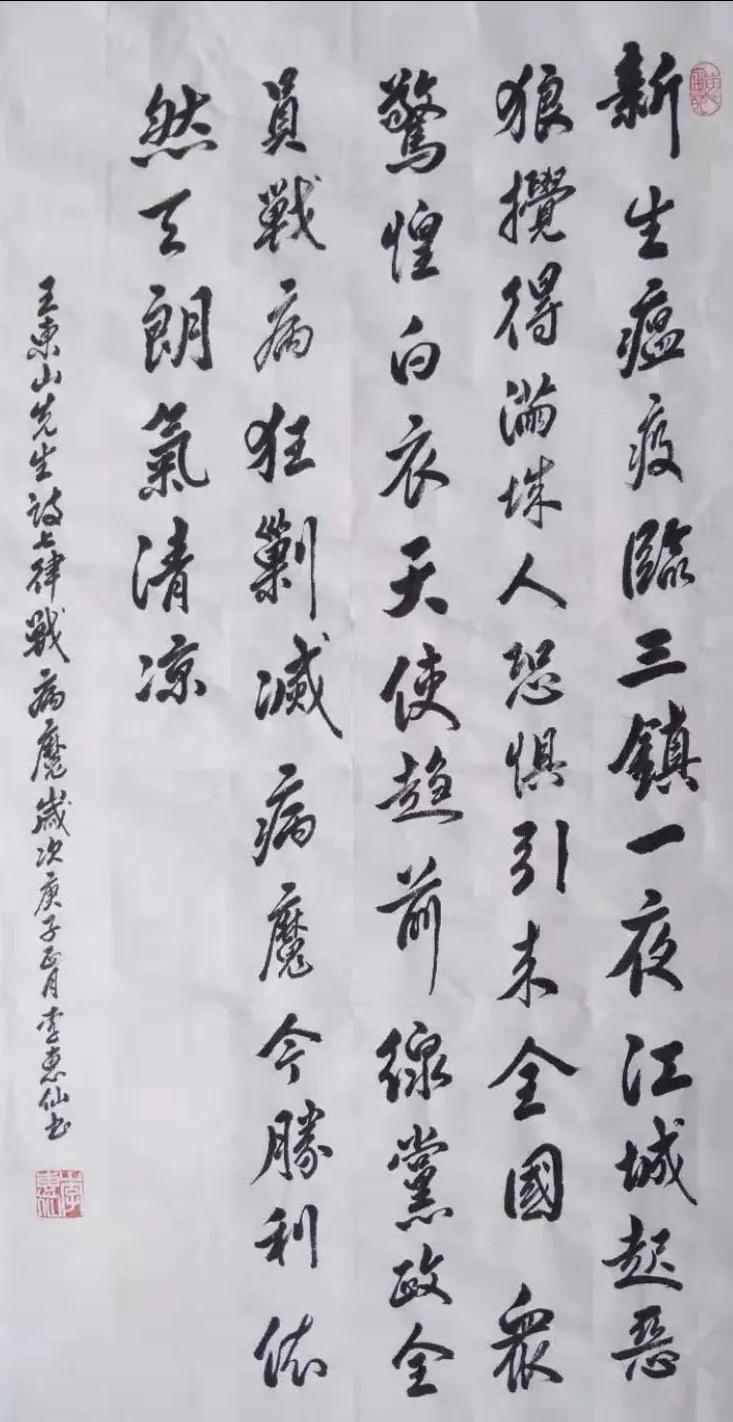 新生瘟疫臨三鎮一夜江城起惡
狼攪得滿城人恐惧引来全國衆
驚惶白衣天使趋前線黨政全
員戰病狂剿滅病魔今勝利依
然天朗氣清凉
王東山先生詩七律戰病魔歲次庚子正月李惠仙书